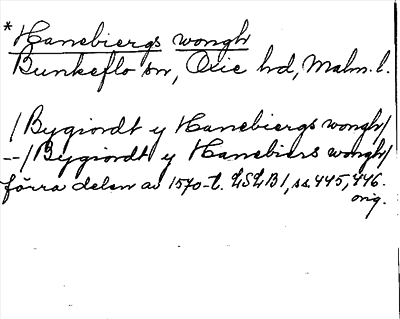 *Hanebiergs wongh
Bunkeflo sn, Oxie hd, Malm. l.
/Bygiordt y Hanebiergs wongh/
--/Bygiordt y Hanebiers wongh/
förra delen av 1570-t. LSLB1, ss. 445, 446.
orig.